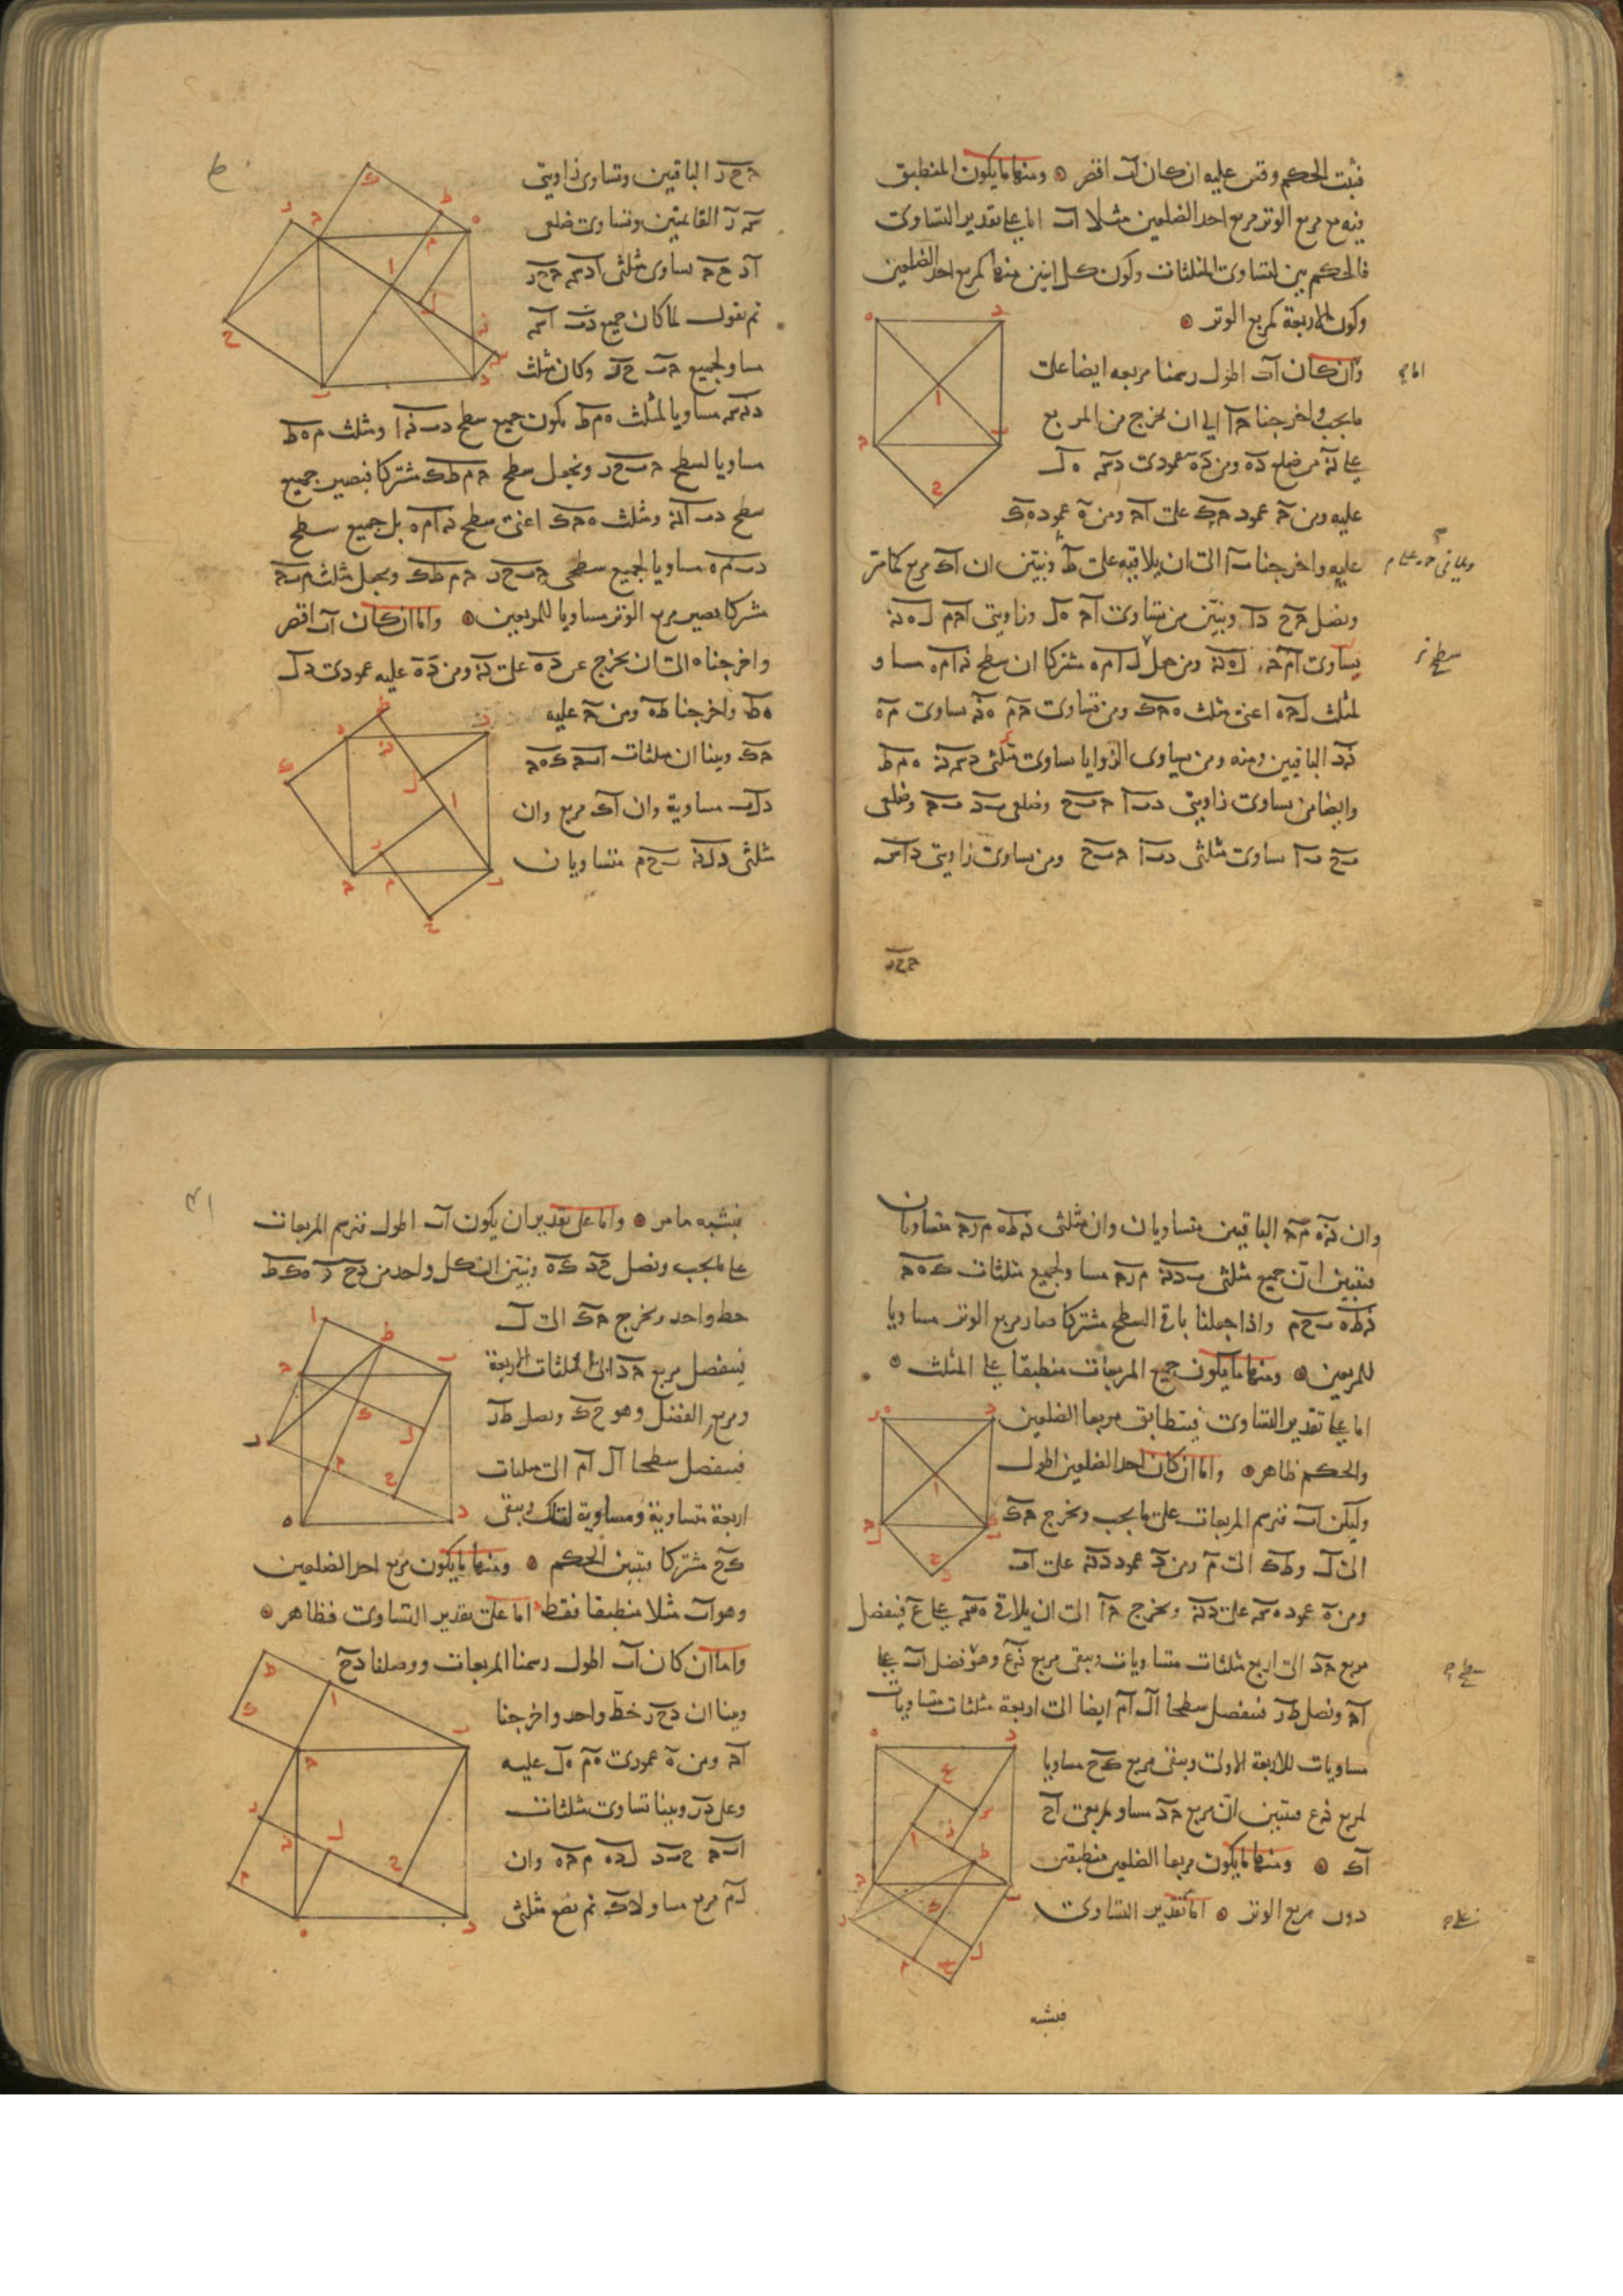 فثبت الحكم وقس عليه ان كان اب اقصر ومنها ما يكون المنطبق
فيه مع مربع الوتر مربع احد الضلعين مثلا اب اما على تقدير التساوى
فالحكم بين لتساوى المثلثات وكون كل اثنين منها كمربع احد الضلعين
وكون الاربعة كمربع الوتر
وان كان اب اطول رسمنا مربعه ايضا على
ما يجب واخرجنا حا الى ان يخرج من المربع
على نه من ضلع ده ومن ده عمودى دسه ه ل
عليه ومن ح عمود حك على اح ومن ه عمود ه ك
عليه واخرجنا با الى ان يلاقيه على ط ونبين ان اك مربع كما مر
ونصل حح دا ونبين من تساوى اح ه ل وزاويتى احم ل ه نه
تساوى ام ح ل ه نه ومن جعل ل ام ه مشتركا ان سطح نه ام ه مساو
لمثلث ل ح ه اعنى مثلث ه ح ك ومن تساوى حم ه نه تساوى م ه
نه د الباقيين ومنه ومن تساوى الزوايا تساوى مثلثى دسه نه ه م ط
وايضا من تساوى زاويتى دبا حبح وضلعى بد بح وضلعى
بح با تساوى مثلثى دبا حبح ومن تساوى زاويتى داسه
ححر
ححر الباقيين وتساوى زاويتى
سه ر القائمتين وتساوى ضلعى
اد حح تساوى مثلثى ادسه ححر
ثم نقول لما كان جميع دب اسه
مساو لجميع حب حر وكان مثلث
دنه سه مساويا لمثلث ه م ط يكون جميع سطح دب نه ا ومثلث م ه ط
مساويا لسطح حبحر ونجعل سطح ح م ط ك مشتركا فيصير جميع
سطح دب انه ومثلث ه ح ك اعنى سطح نه ام ه بل جميع سطح
دب م ه مساويا لجميع سطحى حبحر ح م ط ك ونجعل مثلث م ب ح
مشتركا يصير مربع الوتر مساويا للمربعين واما ان كان اب اقصر
واخرجناه الى ان يخرج عن ده على نه ومن ده عليه عمودى د ل
ه ط واخرجنا ط ه ومن ح عليه
ح ك وبينا ان مثلثات ابح ك ه ح
د ل ب متساوية وان اك مربع وان
مثلثى د ل نه ب ح م متساويان
وان نه ه م ح الباقيين متساويان وان مثلثى نه ط ه م ر ح متساويان
فتبين ان جميع مثلثى ب د نه م ر ح مساو لجميع مثلثات ك ه ح
نه ط ه ب ح م واذا جعلنا باقى السطح مشتركا صار مربع الوتر مساويا
للمربعين ومنها ما يكون جميع المربعات منطبقا على المثلث
اما على تقدير التساوى فيتطابق مربعا الضلعين
والحكم ظاهر واما ان كان احد الضلعين اطول
وليكن اب فنرسم المربعات على ما يجب ونخرج ح ك
الى ل و ط ك الى م ومن د عمود د نه على اب
ومن ه عمود ه سه على د نه ونخرج حا الى ان يلاقى ه سه على ع فينفصل
مربع ح د الى اربع مثلثات متساويات ويبقى مربع نه ع وهو فضل اب على
اح ونصل ط ر فينفصل سطحا ال ام ايضا الى اربعة مثلثات متساويات
مساويات للاربعة الاولى ويبقى مربع ك ح مساويا
لمربع نه ع فتبين ان مربع ح د مساو لمربعى اح
اك ومنها ما يكون مربعا الضلعين منطبقين
دون مربع الوتر اما بتقدير التساوى
فيشبه
فيشبه ما مر واما على تقدير ان يكون اب اطول فنرسم المربعات
على ما يجب ونصل ح د ك ه ونبين ان كل واحد من د ح ر ه ك ط
خط واحد ونخرج ح ك الى ل
فينفصل مربع ح د الى المثلثات الاربعة
ومربع الفضل وهو ح ك ونصل ط ر
فينفصل سطحا ال ام الى مثلثات
اربعة متساوية ومساوية لتلك ويبقى
ك ح مشتركا فتبين الحكم ومنها ما يكون مربع احد الضلعين
وهو اب مثلا منطبقا فقط اما على تقدير التساوى فظاهر
واما ان كان اب اطول رسمنا المربعات ووصلنا د ح
وبينا ان د ح ر خط واحد واخرجنا
اح ومن ه عمودى ه م ه ل عليه
وعلى د ر وبينا تساوى مثلثات
ابح حبد ل د ه م ح ه وان
ل م مربع مساو لاك ثم نضع مثلثى